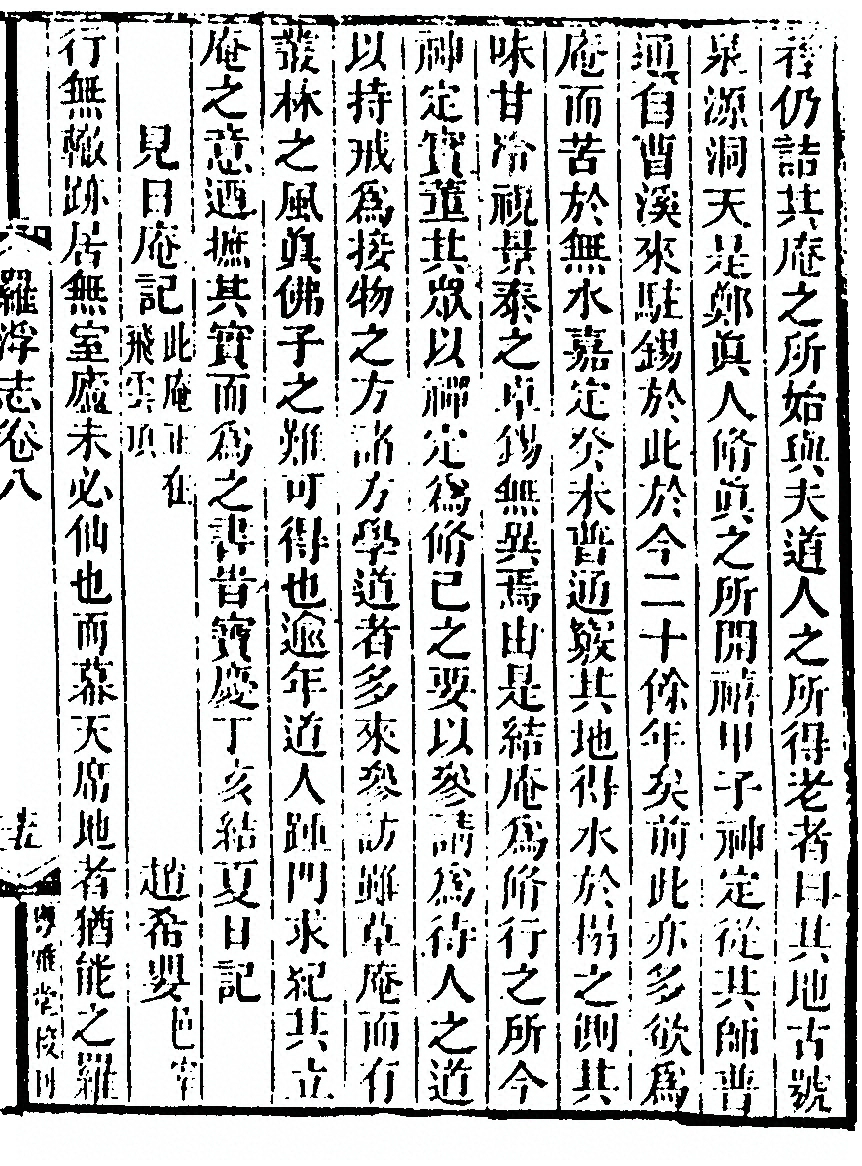 從仍詰其庵之所始與夫道人之所得老者曰其地古號
泉源洞天是鄭眞人脩眞之所開禧甲子神定從其師普
通自曹溪來駐錫於此於今二十餘年矣前此亦多欲爲
庵而苦於無水嘉定癸未普通䥴其地得水於榻之側其
味甘冷視景泰之卓錫無異焉由是結庵爲脩行之所今
神定實董其眾以禪定爲脩己之要以參請爲待人之道
以持戒爲接物之方諸方學道者多來參訪雖草庵而有
叢林之風眞佛子之難可得也逾年道人踵門求紀其立
庵之意迺摭其實而爲之書昔寶慶丁亥結夏日記
見日庵記此庵正在飛雲頂 趙希㜲邑宰
行無轍跡居無室廬未必仙也而幕天席地者猶能之羅
羅浮志卷八
粵雅堂校刊